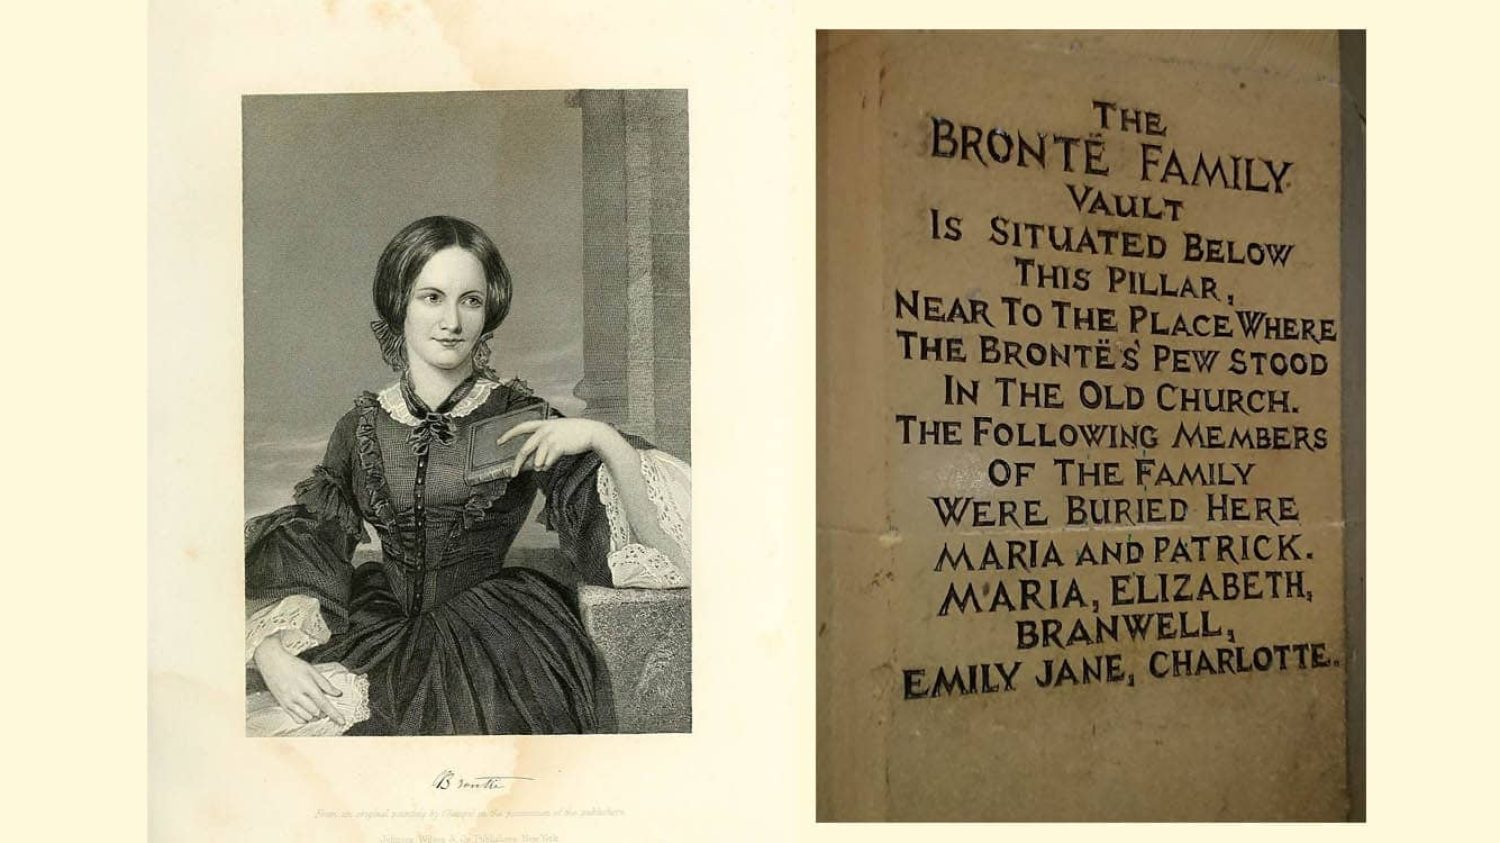 Brontë
From an original painting by Chappel in the possession of the publishers.
Johnson, Wilson & Co. Publishers, New York
THE
BRONTË FAMILY
VAULT
IS SITUATED BELOW
THIS PILLAR,
NEAR TO THE PLACE WHERE
THE BRONTËS' PEW STOOD
IN THE OLD CHURCH.
THE FOLLOWING MEMBERS
OF THE FAMILY
WERE BURIED HERE
MARIA AND PATRICK.
MARIA, ELIZABETH,
BRANWELL,
EMILY JANE, CHARLOTTE.